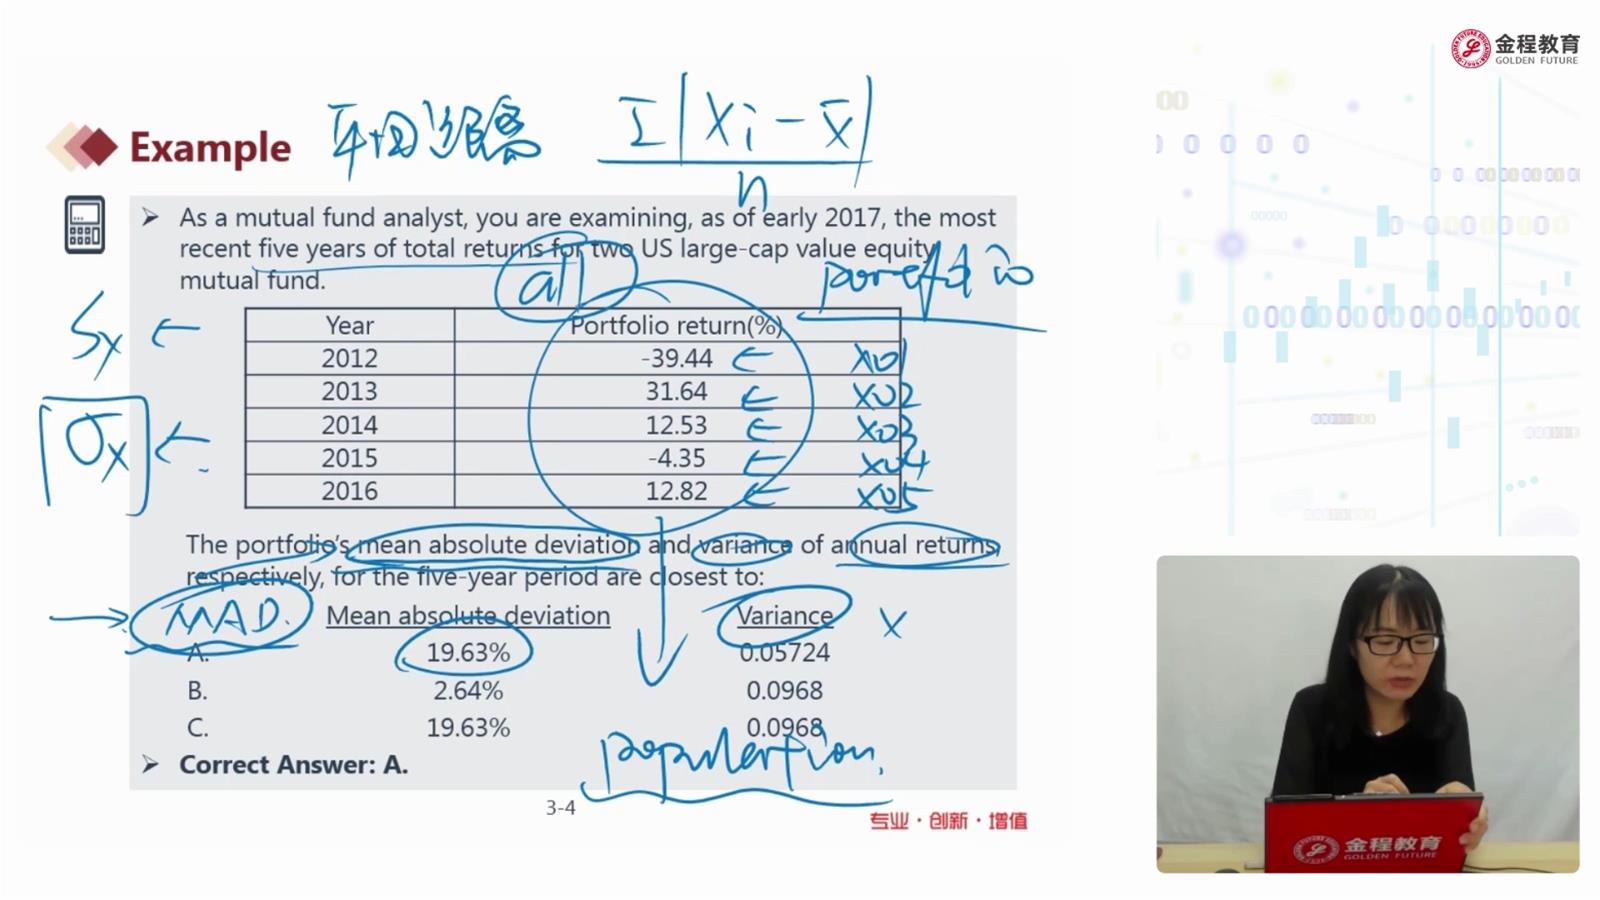 金程教育
GOLDEN FUTURE
Example
Σ|Xi - x̄|
n
As a mutual fund analyst, you are examining, as of early 2017, the most
recent five years of total returns for two US large-cap value equity
mutual fund.
all
Sx
σx
Year Portfolio return(%)
2012 -39.44 X01
2013 31.64 X02
2014 12.53 X03
2015 -4.35 X04
2016 12.82 X05
The portfolio's mean absolute deviation and variance of annual returns,
respectively, for the five-year period are closest to:
MAD. Mean absolute deviation Variance X
A. 19.63% 0.05724
B. 2.64% 0.0968
C. 19.63% 0.0968
Correct Answer: A.
3-4
专业·创新·增值
金程教育
GOLDEN FUTURE